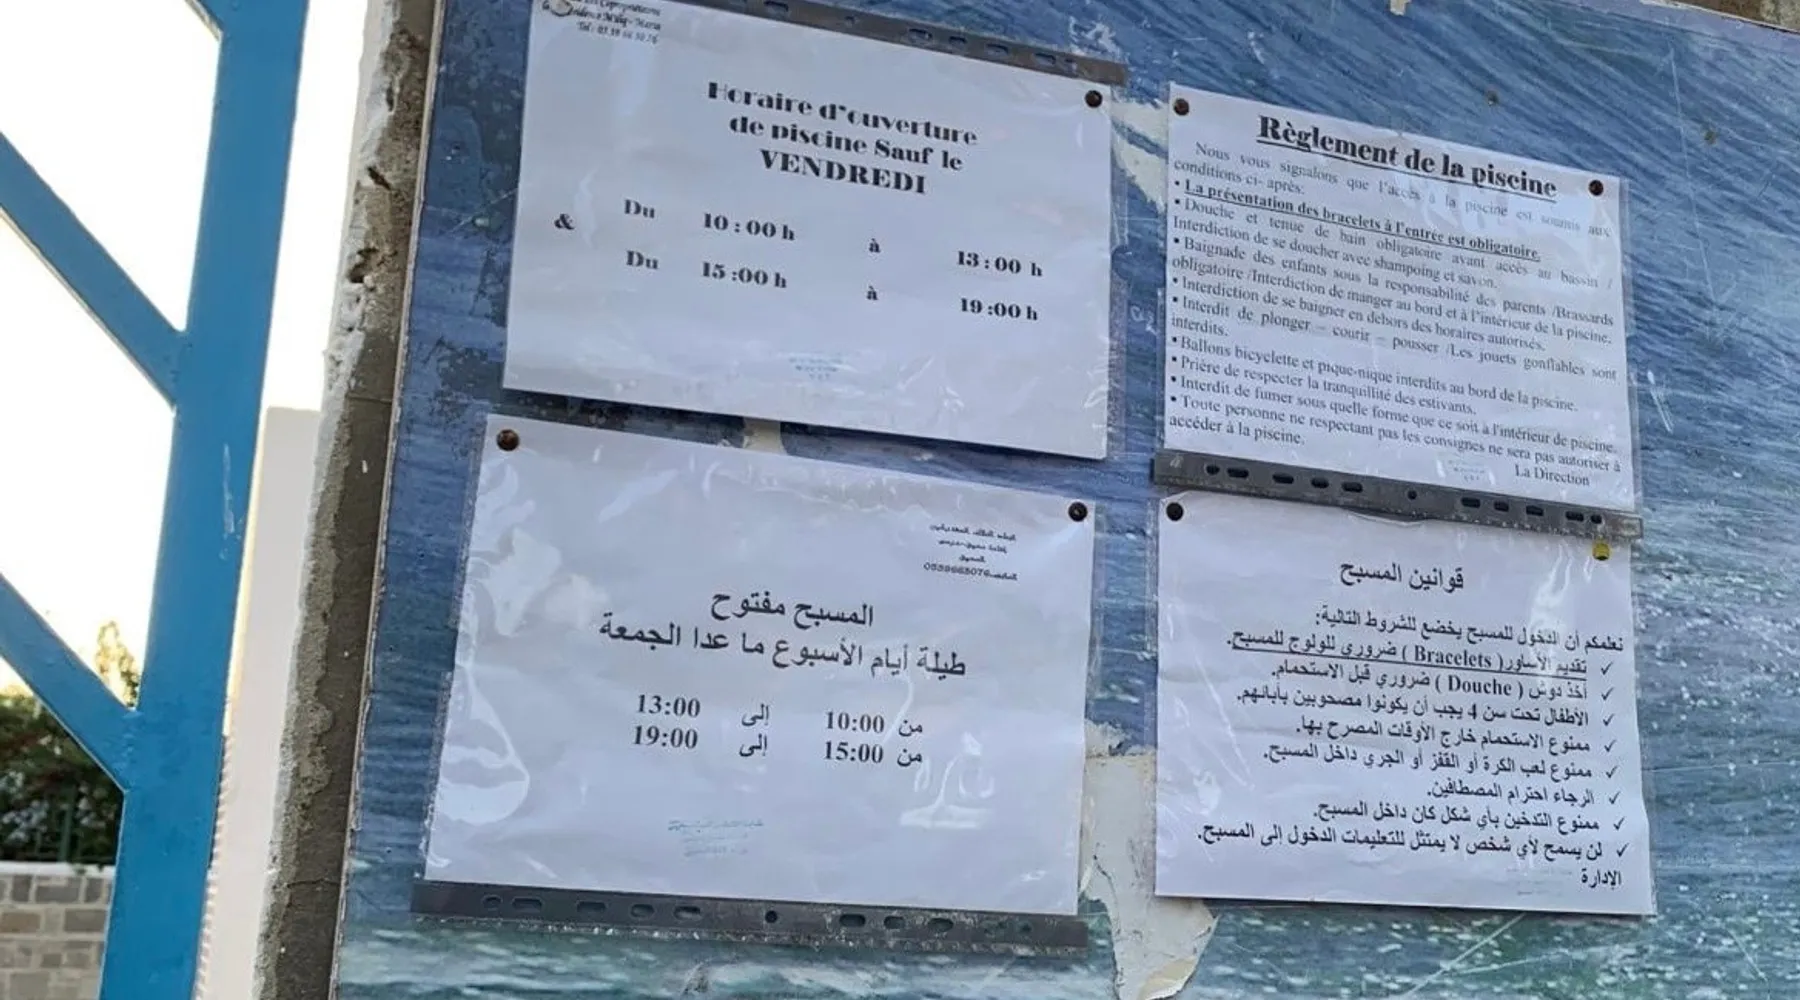 Tél : 05 39 66 50 76
Horaire d'ouverture
de piscine Sauf le
VENDREDI
Du 10 : 00 h à 13 : 00 h
&
Du 15 :00 h à 19 :00 h
Règlement de la piscine
Nous vous signalons que l'accès à la piscine est soumis aux
conditions ci- après:
▪ La présentation des bracelets à l'entrée est obligatoire.
▪ Douche et tenue de bain obligatoire avant accès au bassin /
Interdiction de se doucher avec shampoing et savon.
▪ Baignade des enfants sous la responsabilité des parents /Brassards
obligatoire /Interdiction de manger au bord et à l'intérieur de la piscine.
▪ Interdiction de se baigner en dehors des horaires autorisés.
▪ Interdit de plonger – courir – pousser /Les jouets gonflables sont
interdits.
▪ Ballons bicyclette et pique-nique interdits au bord de la piscine.
▪ Prière de respecter la tranquillité des estivants.
▪ Interdit de fumer sous quelle forme que ce soit à l'intérieur de piscine.
▪ Toute personne ne respectant pas les consignes ne sera pas autoriser à
accéder à la piscine.
La Direction
0539665076
المسبح مفتوح
طيلة أيام الأسبوع ما عدا الجمعة
من 10:00 إلى 13:00
من 15:00 إلى 19:00
قوانين المسبح
نعلمكم أن الدخول للمسبح يخضع للشروط التالية:
✓ تقديم الأساور( Bracelets ) ضروري للولوج للمسبح.
✓ أخذ دوش ( Douche ) ضروري قبل الاستحمام.
✓ الأطفال تحت سن 4 يجب أن يكونوا مصحوبين بأبائهم.
✓ ممنوع الاستحمام خارج الأوقات المصرح بها.
✓ ممنوع لعب الكرة أو القفز أو الجري داخل المسبح.
✓ الرجاء احترام المصطافين.
✓ ممنوع التدخين بأي شكل كان داخل المسبح.
✓ لن يسمح لأي شخص لا يمتثل للتعليمات الدخول إلى المسبح.
الإدارة